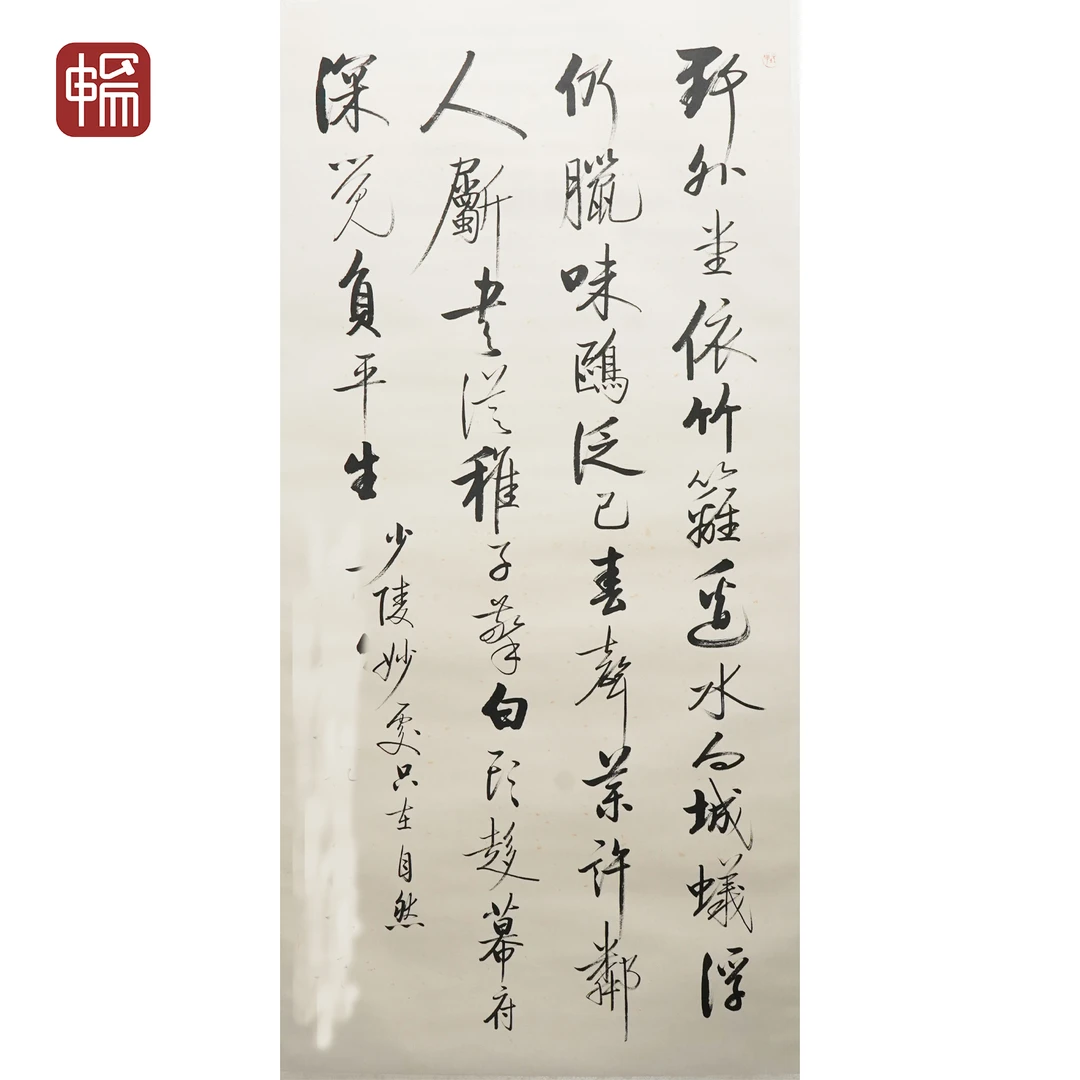 野外堂依竹籬邊水向城蟻浮
仍臘味鷗泛已春聲藥許鄰
人斸書從稚子擎白頭趍幕府
深覺負平生
少陵妙處只在自然